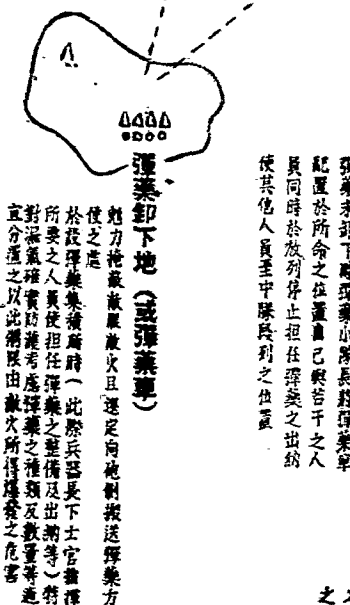 彈藥未卸下時彈藥小隊長將彈藥車
配置於所命之位置自己與若干之人
員同時於放列停止担任彈藥之出納
使其他人員至中隊段列之位置
彈藥卸下地（或彈藥車）
勉力掩蔽敵眼敵火且選定向砲側搬送彈藥方
便之處
於設彈藥集積所時（此際兵器長下士官指揮
所要之人員使担任彈藥之整備及出納等）特
對濕氣確實防護考慮彈藥之種類及數量等適
宜分置之以此期限由敵火所得爆發之危害